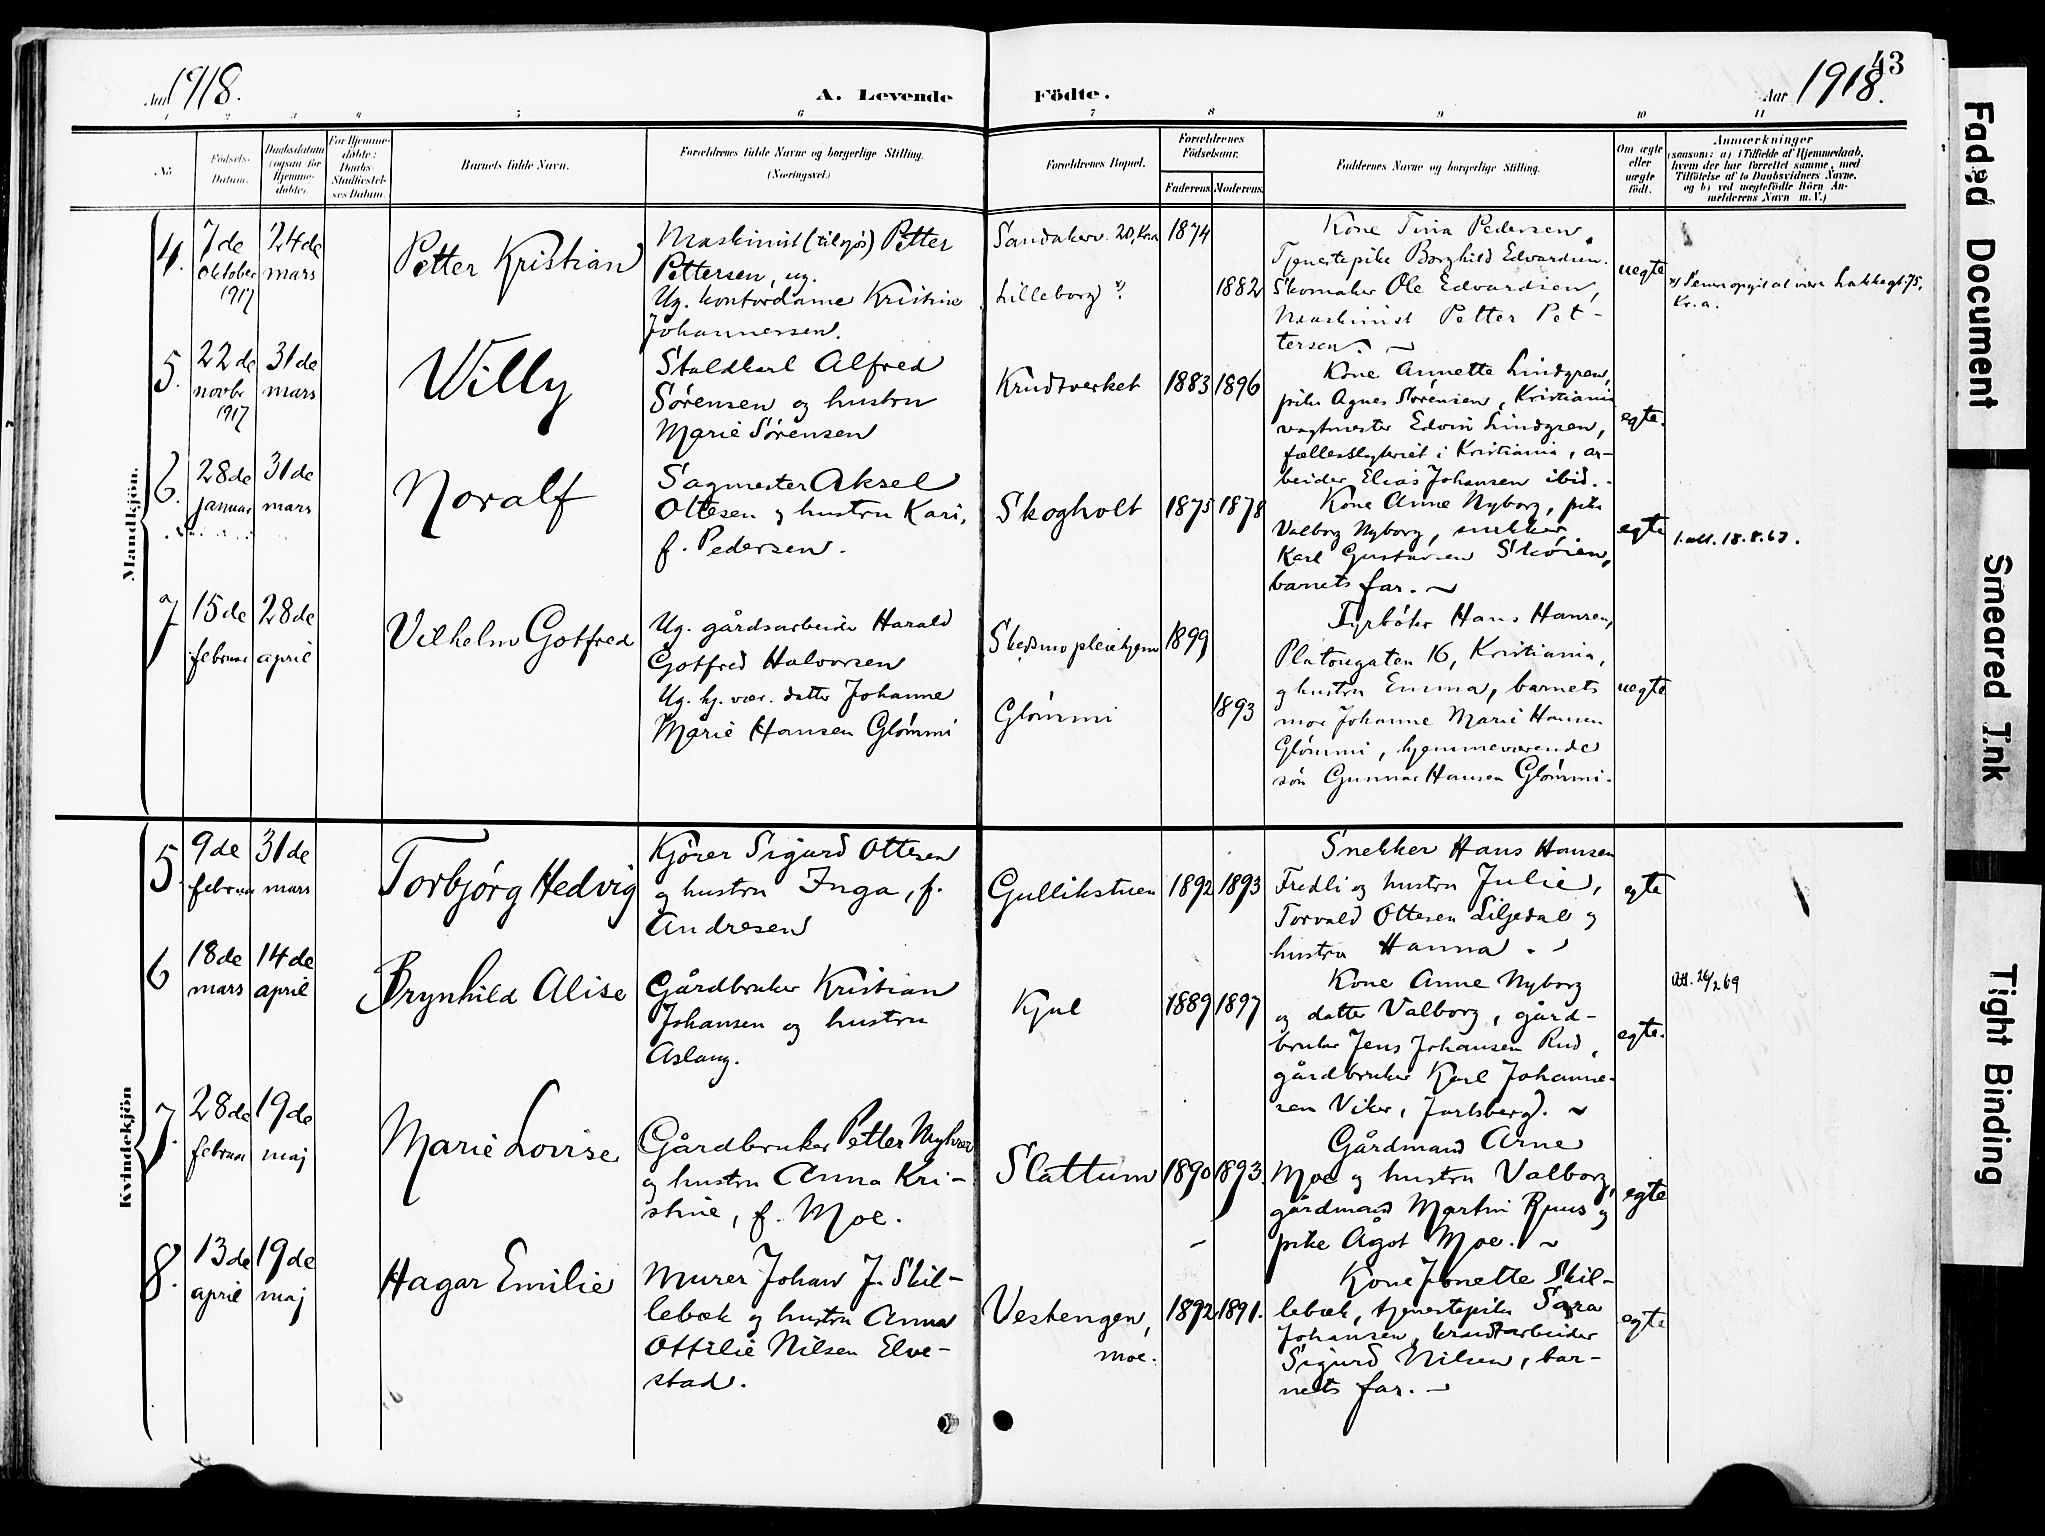 43
Aar 1918.
A. Levende Födte.
Aar 1918.
1 2 3 4 5 6 7 8 9 10 11
No.
Födsels-Datum.
Daabsdatum (ogsaa for Hjemme-döbte).
For Hjemme-döbte: Daabs-Stadfæstel-ses Datum.
Barnets fulde Navn.
Forældrenes fulde Navne og borgerlige Stilling. (Næringsvei.)
Forældrenes Bopæl.
Forældrenes Födselsaar.
Faderens. Moderens.
Faddernes Navne og borgerlige Stilling.
Om ægte eller uægte födt.
Anmærkninger
(saasom: a) i Tilfælde af Hjemmedaab,
hvem der har forrettet samme, med
Tilföielse af to Daabsvidners Navne,
og b) ved uægtefödte Börn An-
melderens Navn m. V.)
Mandkjön.
4.
7de oktober 1917
24de mars
Petter Kristian
Maskinist (tilsjös) Petter
Pettersen, ug.
Ug. kontordame Kristine
Johannessen.
Sandakerv. 20, Kria
Lilleborg x).
1874
1882
Kone Tina Pedersen,
Tjenestepike Borghild Edvardsen.
Skomaker Ole Edvardsen,
Maskinist Petter Pet-
tersen. ~
uegte
x) Senere opgit at være Lakkegt. 75,
Kr.a.
5.
22de novbr 1917
31de mars
Willy
Staldkarl Alfred
Sørensen og hustru
Marie Sørensen
Krudtverket
1883 1896
Kone Annette Lindgren,
pike Agnes Sørensen, Kristiania
vagtmester Edvin Lindgren,
fællesslagteriet i Kristiania, ar-
beider Elias Johansen ibid.
egte.
6.
28de januar
31de mars
Noralf
Sagmester Aksel
Ottesen og hustru Kari,
f. Pedersen.
Skogholt
1875 1878
Kone Anne Nyborg, pike
Valborg Nyborg, snekker
Karl Gustavsen Skøien,
barnets far. ~
egte
1. att. 18.8.67.
7
15de februar
28de april
Vilhelm Gotfred
Ug. gårdsarbeider Harald
Gotfred Halvorsen
Ug. hj. vær. datter Johanne
Marie Hansen Glömmi
Skedsmo pleiehjem
Glömmi
1899
1893
Fyrböter Hans Hansen,
Platougaten 16, Kristiania,
og hustru Emma, barnets
mor Johanne Marie Hansen
Glömmi, hjemmeværende
sön Gunnar Hansen Glömmi.
uegte
Kvindekjön
5.
9de februar
31de mars
Torbjørg Hedvig
Kjörer Sigurd Ottesen
og hustru Inga, f.
Andresen
Gullikstuen
1892 1893
Snekker Hans Hansen
Fredli og hustru Julie,
Torvald Ottesen Liljedal og
hustru Hanna.
egte
6
18de mars
14de april
Brynhild Alise
Gårdbruker Kristian
Johansen og hustru
Aslaug.
Kjul
1889 1897
Kone Anne Nyborg
og datter Valborg, gård-
bruker Jens Johansen Rud,
gårdbruker Karl Johanne-
sen Viker, Jarlsberg). ~
egte.
Att. 26/2 69
7.
28de februar
19de maj
Marie Lovise
Gårdbruker Petter Myhrer
og hustru Anna Kri-
stine, f. Moe.
Slattum
1890 1893.
Gårdmand Arne
Moe og hustru Valborg,
gårdmand Martin Ruus og
pike Ågot Moe. ~
egte
8.
13de april
19de maj
Hagar Emilie
Murer Johan J. Skil-
lebæk og hustru Anna
Ottilie Nilsen Elve-
stad.
Vestengen,
Moe.
1892 1891.
Kone Jonette Skil-
lebæk, tjenestepike Sara
Johansen, brudtarbeider
Sigurd Nilsen, bar-
nets far. ~
egte
Faded Document
Smeared Ink
Tight Binding